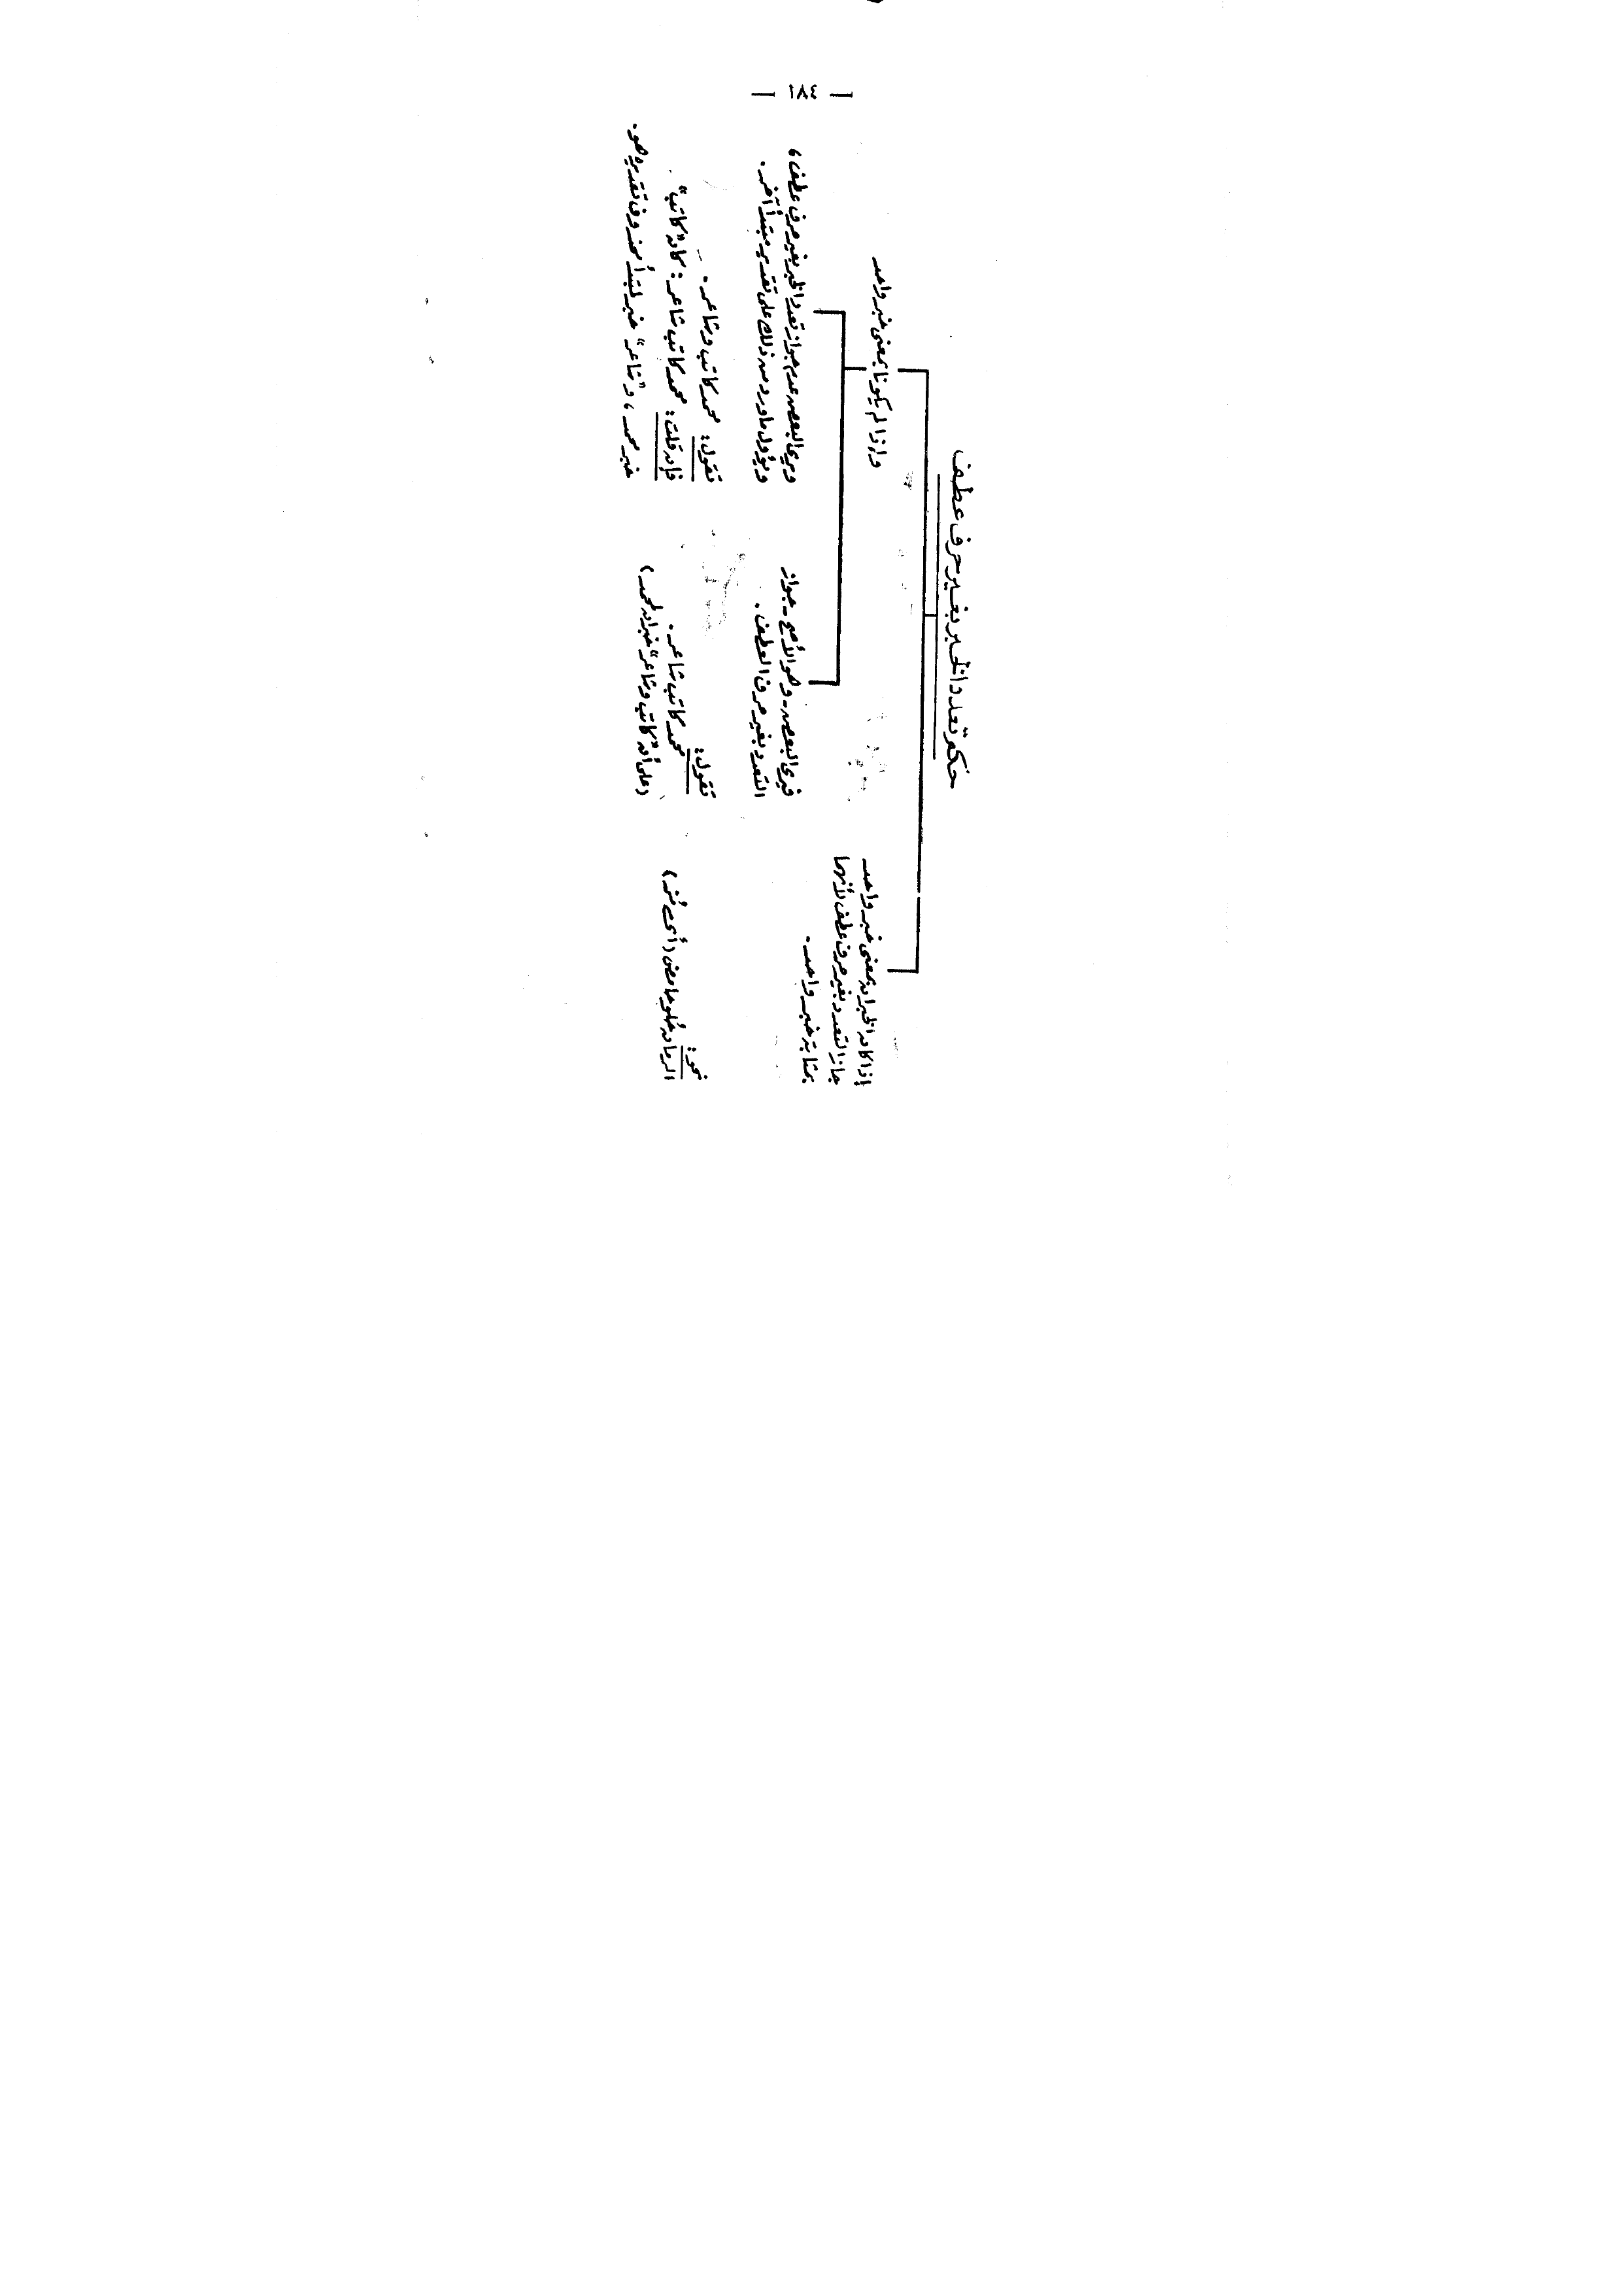 — ١٨٤ —
حكم تعدد الخبر بغير حرف عطف
إذا كان الخبران بمعنى خبر واحد
جاز التعدد بغير حرف عطف لأنهما
بمثابة خبر واحد.
نحو:
الرمان حُلو حامض (أى مُز)
وإذا لم يكونا بمعنى خبر واحد
فيرى البعض - وهو الأصح - جواز
التعدد بغير حرف العطف.
تقول:
محمد كاتب شاعر.
(على أن "كاتب وشاعر" خبران لمحمد)
ويرى البعض عدم جواز تعدد الخبر بغير حرف عطف،
ويؤول ما ورد من ذلك على تقدير مبتدأ آخر.
تقول: محمد كاتب وشاعر.
فإن قلت: محمد كاتب شاعر: كان "كاتب"
خبر محمد، و"شاعر" خبر لمبتدأ محذوف تقديره هو.